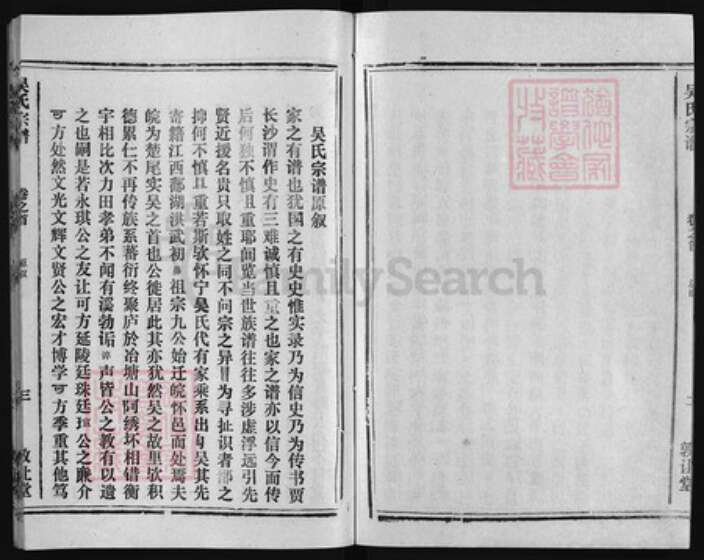 吴氏宗谱原叙
家之有谱也犹国之有史史惟实录乃为信史乃为传书贾
长沙谓作史有三难诚慎且重之也家之谱亦以信今而传
后何独不慎且重耶闻览当世族谱往往多涉虚浮远引先
贤近援名贵只取姓之同不问宗之异目为寻扯识者鄙之
抑何不慎且重若斯欤怀宁吴氏代有家乘系出句吴其先
寄籍江西鄱湖洪武初 祖宗九公始迁皖怀邑而处焉夫
皖为楚尾实吴之首也公徙居此其亦犹然吴之故里欤积
德累仁不再传族系蕃衍终聚庐於冶塘山阿绣坏相错衡
宇相比次力田孝弟不闻有溪勃诟谇声皆公之教有以遗
之也嗣是若永琪公之友让可方延陵廷珠廷 公之廉介
可方处然文光文辉文贤公之宏才博学可方季重其他笃
吴氏宗谱
卷之首
原叙
三
敦让堂
吴氏宗谱
卷之首
敦让堂
FamilySearch